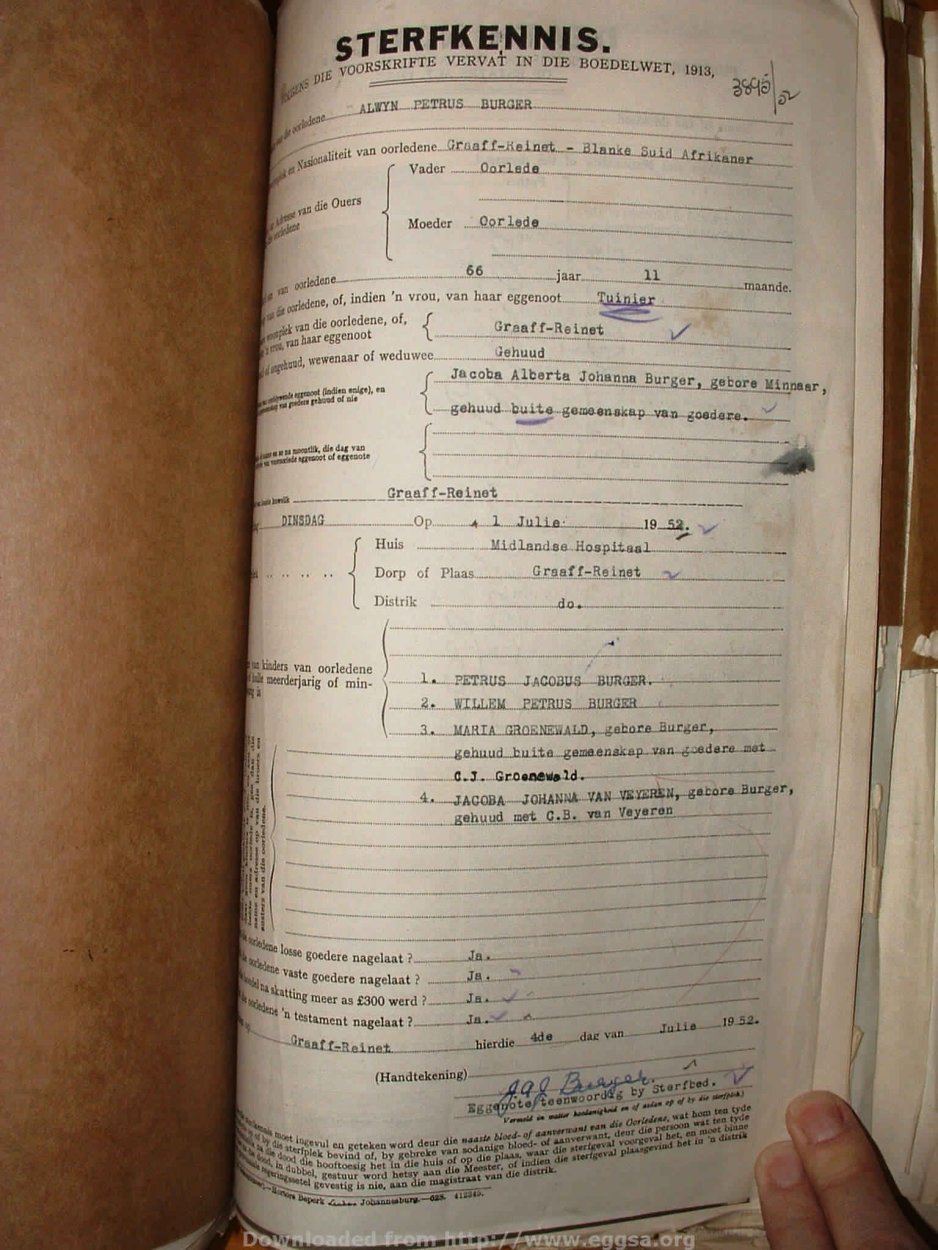 STERFKENNIS.
DIE VOORSKRIFTE VERVAT IN DIE BOEDELWET, 1913,
3895/52
van die oorledene ALWYN PETRUS BURGER
en Nasionaliteit van oorledene Graaff-Reinet - Blanke Suid Afrikaner
Vader Oorlede
Adresse van die Ouers
oorledene
Moeder Oorlede
van oorledene 66 jaar 11 maande.
van die oorledene, of, indien 'n vrou, van haar eggenoot Tuinier
woonplek van die oorledene, of,
'n vrou, van haar eggenoot Graaff-Reinet
of ongehuud, wewenaar of weduwee Gehuud
Jacoba Alberta Johanna Burger, gebore Minnaar,
eggenoot (indien enige), en
van goedere gehuud of nie
gehuud buite gemeenskap van goedere.
moontlik, die dag van
eggenoot of eggenote
laaste huwelik Graaff-Reinet
DINSDAG Op 1 Julie 1952.
Huis Midlandse Hospitaal
Dorp of Plaas Graaff-Reinet
Distrik do.
van kinders van oorledene
hulle meerderjarig of min-
is
1. PETRUS JACOBUS BURGER.
2. WILLEM PETRUS BURGER
3. MARIA GROENEWALD, gebore Burger,
gehuud buite gemeenskap van goedere met
C.J. Groenewald.
4. JACOBA JOHANNA VAN VEYEREN, gebore Burger,
gehuud met C.B. van Veyeren
oorledene losse goedere nagelaat ? Ja.
oorledene vaste goedere nagelaat ? Ja.
boedel na skatting meer as £300 werd ? Ja.
oorledene 'n testament nagelaat ? Ja.
op Graaff-Reinet hierdie 4de dag van Julie 1952.
(Handtekening) J A J Burger.
Eggenote, teenwoordig by Sterfbed.
Vermeld in watter hoedanigheid en of aldan op of by die sterfplek)
moet ingevul en geteken word deur die naaste bloed- of aanverwant van die Oorledene, wat hom ten tyde
of by die sterfplek bevind of, by gebreke van sodanige bloed- of aanverwant, deur die persoon wat ten tyde
die dood die hooftoesig het in die huis of op die plaas, waar die sterfgeval voorgeval het, en moet binne
dood, in dubbel, gestuur word hetsy aan die Meester, of indien die sterfgeval plaasgevind het in 'n distrik
gevestig is nie, aan die magistraat van die distrik.
Hortors Beperk Johannesburg.—028. 412249.
Downloaded from http://www.eggsa.org